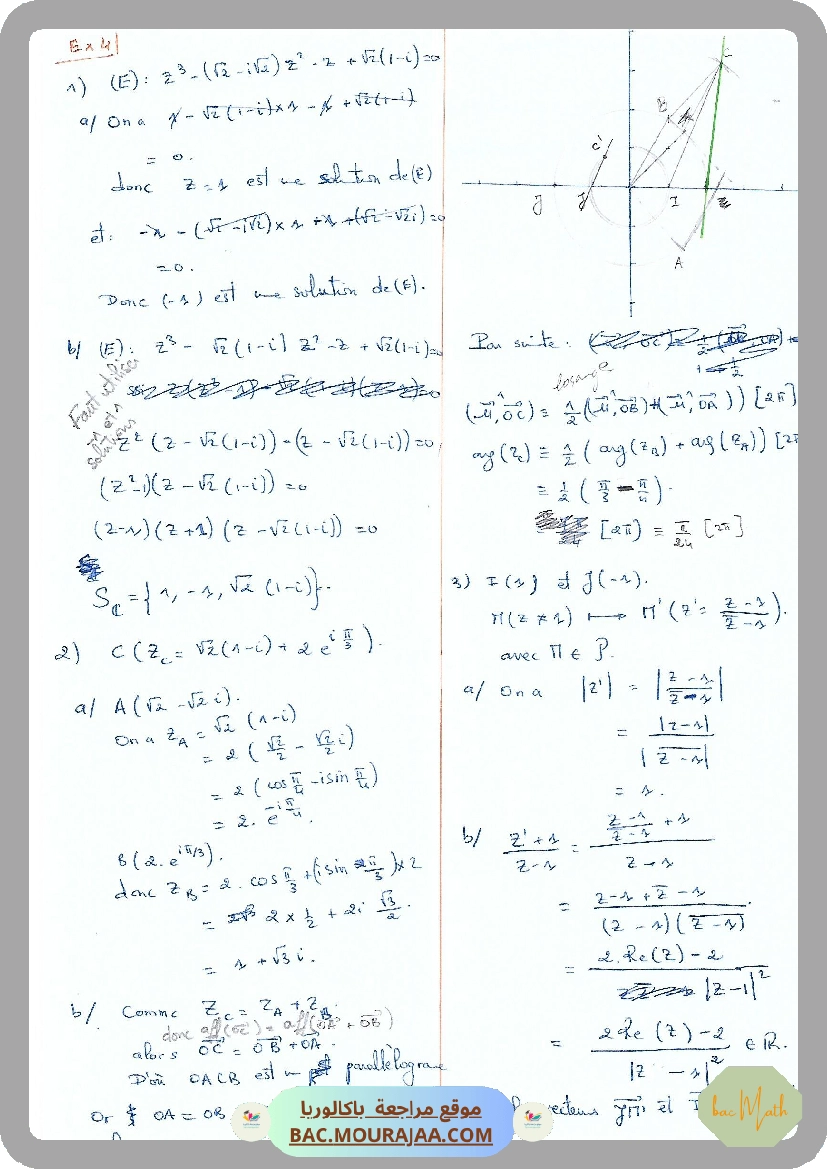 Ex 4
1) (E): z³ - (√2 - i√2) z² - z + √2(1-i) = 0
a/ On a 1 - √2(1-i)×1 - 1 + √2(1-i)
= 0.
donc z = 1 est une solution de (E)
et: -1 - (√2 - i√2) × 1 + 1 + (√2 - √2i) = 0
= 0.
Donc (-1) est une solution de (E).
b/ (E): z³ - √2(1-i) z² - z + √2(1-i) = 0
Faut utiliser
-1 et 1
solutions
z²(z - √2(1-i)) - (z - √2(1-i)) = 0
(z²-1)(z - √2(1-i)) = 0
(z-1)(z+1)(z - √2(1-i)) = 0
S_ℂ = {1, -1, √2(1-i)}.
2) C(Z_C = √2(1-i) + 2e^{iπ/3}).
a/ A(√2 - √2i).
On a Z_A = √2(1-i)
= 2(√2/2 - √2/2 i)
= 2(cos π/4 - i sin π/4)
= 2.e^{-iπ/4}.
B(2.e^{iπ/3}).
donc Z_B = 2.cos π/3 + (i sin π/3)×2
= 2 × 1/2 + 2i √3/2.
= 1 + √3i.
b/ Comme Z_C = Z_A + Z_B.
donc aff(OC) = aff(OA + OB)
alors OC = OB + OA.
D'où OACB est un parallélograme
Or OA = OB
C
B
C'
J
I
A
Par suite:
losange
(u, OC) ≡ 1/2((u, OB) + (u, OA)) [2π]
arg(Z_C) ≡ 1/2(arg(Z_B) + arg(Z_A)) [2π
≡ 1/2(π/3 - π/4).
[2π] ≡ π/24 [2π]
3) I(1) et J(-1).
M(z≠1) ⟼ M'(z' = (z-1)/(z̄-1)).
avec M ∈ P.
a/ On a |z'| = |(z-1)/(z̄-1)|
= |z-1|/|z̄-1|
= 1.
b/ (z'+1)/(z-1) = ((z-1)/(z̄-1) + 1)/(z-1)
= (z-1+z̄-1)/((z-1)(z̄-1)).
= (2.Re(z)-2)/|z-1|²
= (2Re(z)-2)/|z-1|² ∈ ℝ.
vecteurs JM' et
موقع مراجعة باكالوريا
BAC.MOURAJAA.COM
bac Math